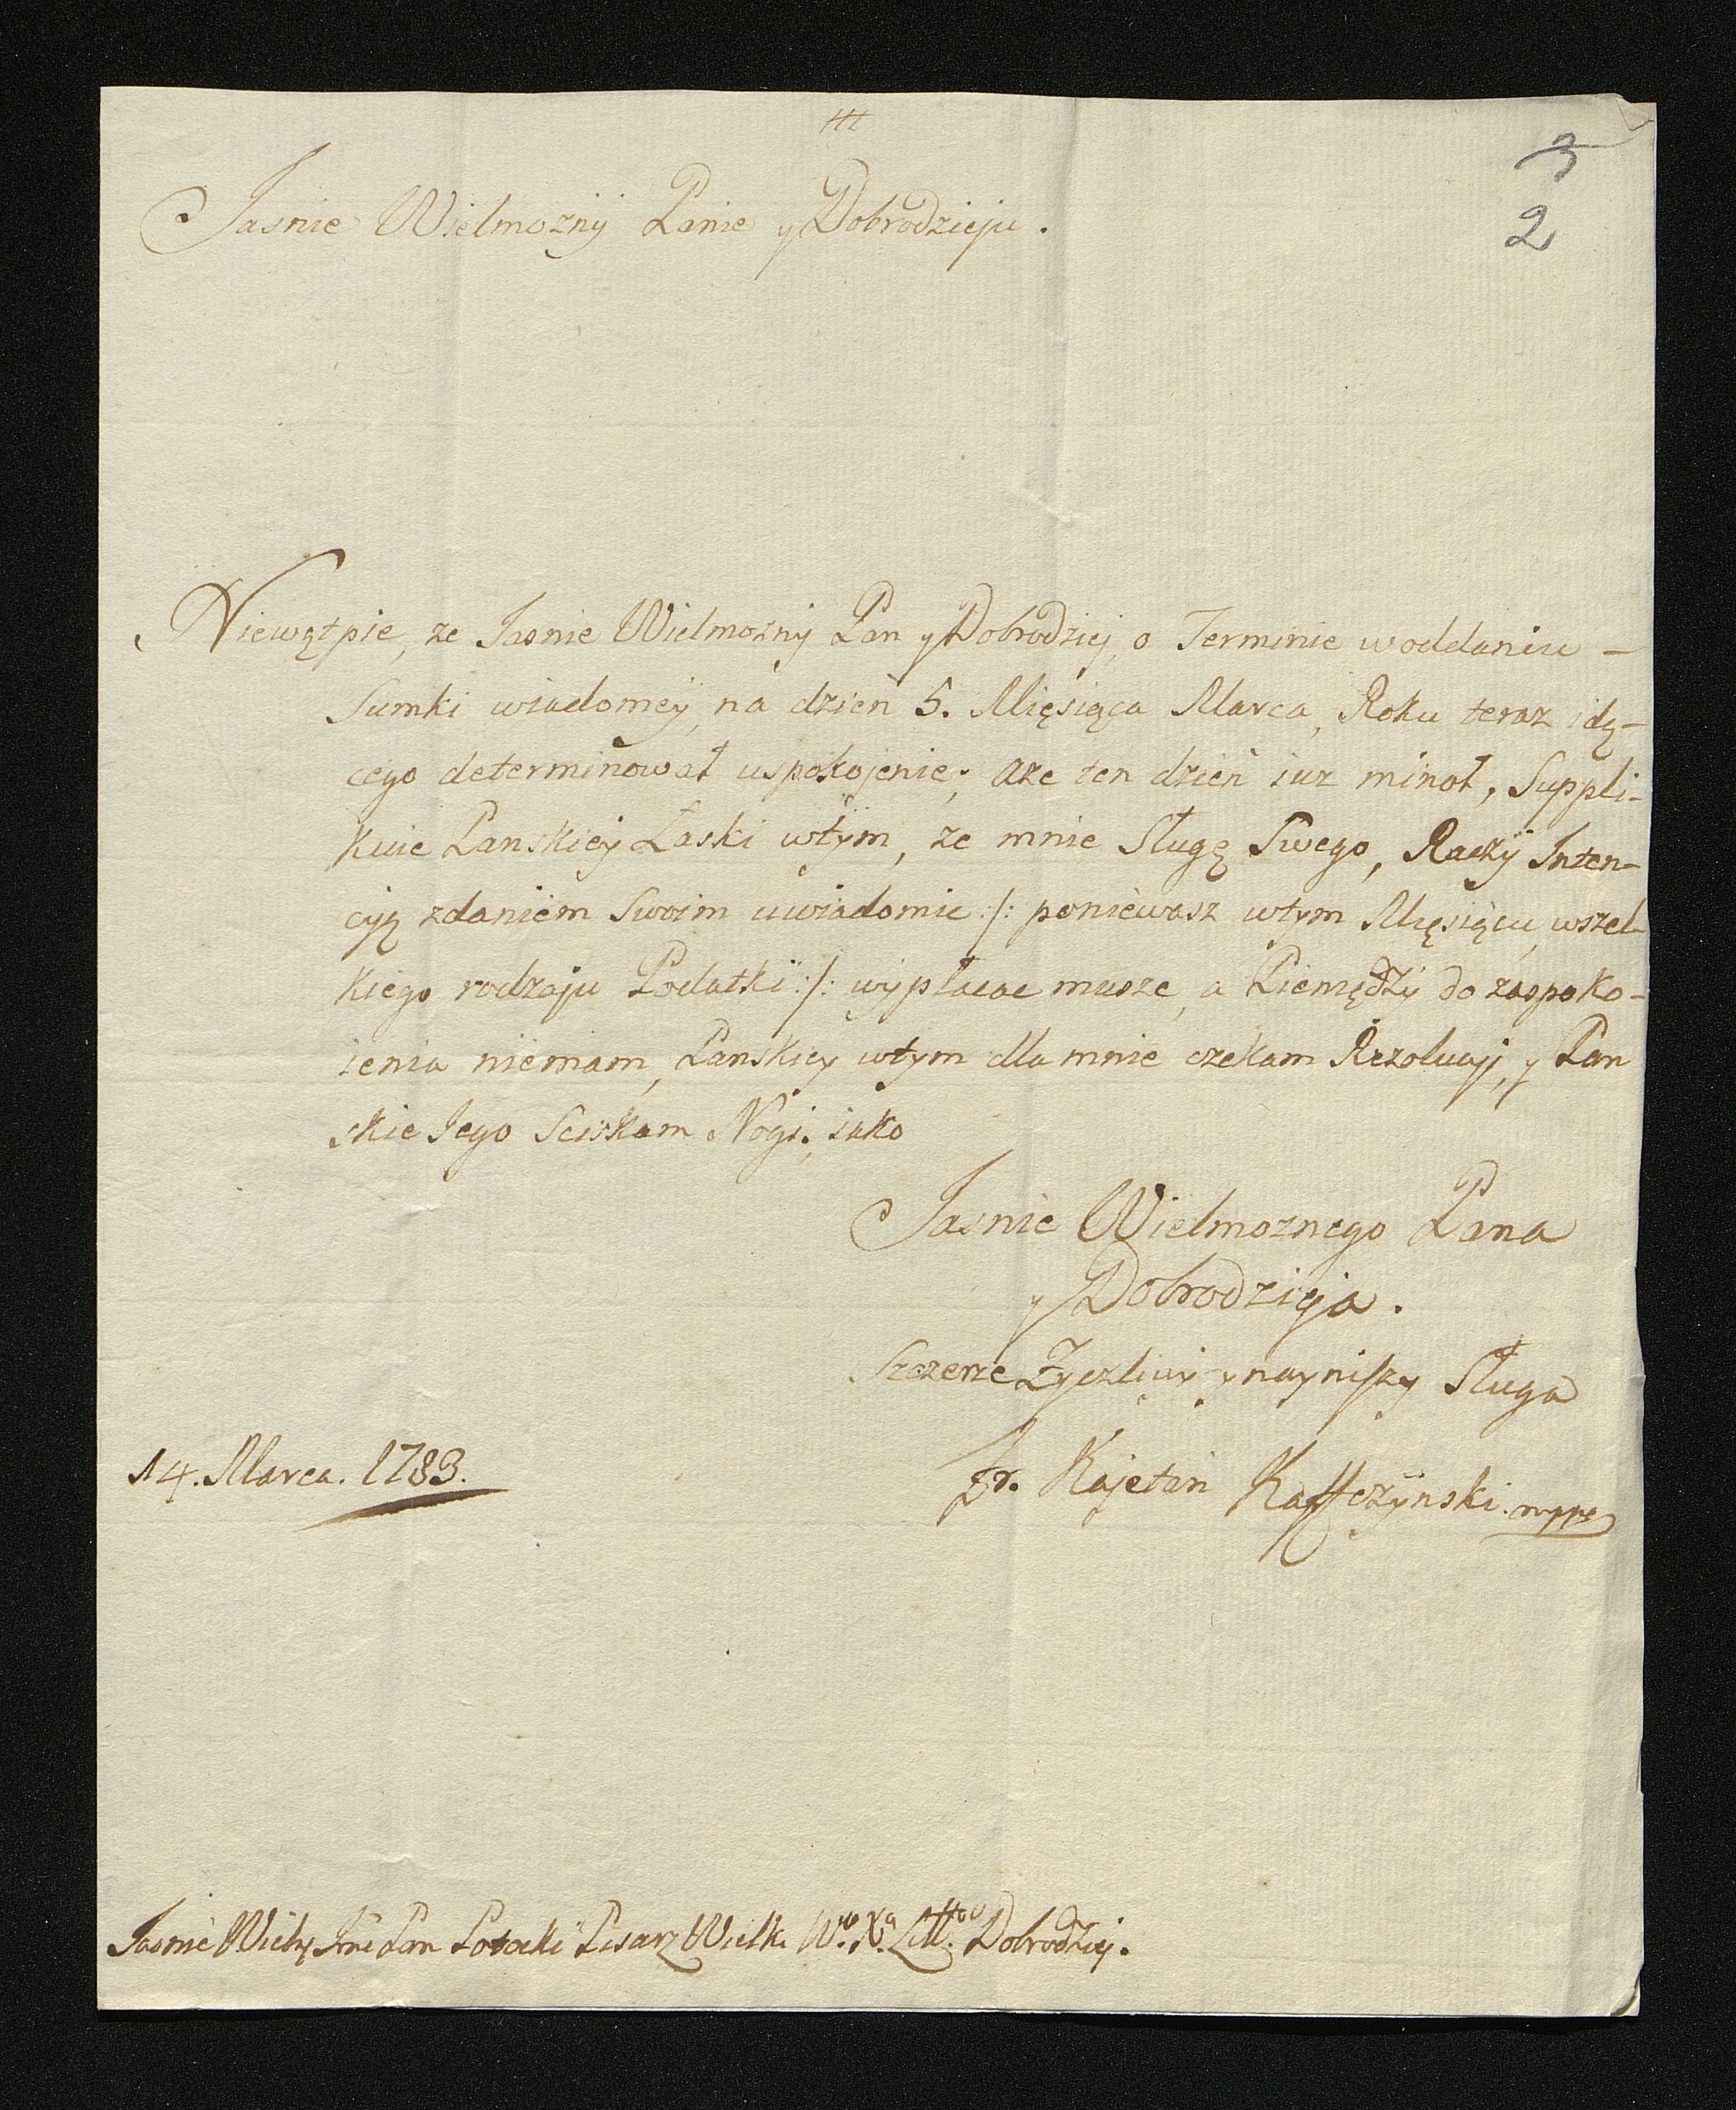 3
2
Jasnie Wielmozny Panie y Dobrodzieju.
Niewątpie, ze Jasnie Wielmozny Pan y Dobrodziej, o Terminie w oddaniu –
Sumki wiadomey, na dzień 5. Miesiąca Marca, Roku teraz idą-
cego determinował uspokojenie; aże ten dzień iuz minoł, Suppli-
kuie Panskiey Łaski wtym, ze mnie Sługę Swego, Raczÿ Inten-
cyą zdaniem Swoim uwiadomic :/: poniewasz wtym Miesiącu, wszel-
kiego rodzaju Podatki :/: wypłacac musze, a Pieniędzy do zaspoko-
ienia niemam, Panskiey wtym dla mnie czekam Rezolucyi, y Pan
skie Jego Sciskam Nogi, iako
Jasnie Wielmoznego Pana
y Dobrodzieja.
Szczerze Zyczliwy y nayniszy Sługa
Kajetan
14. Marca. 1783.
Jasnie Wielny Jmć Pan Potocki Pisarz Wielki W.o X.a Litto Dobrodziej.